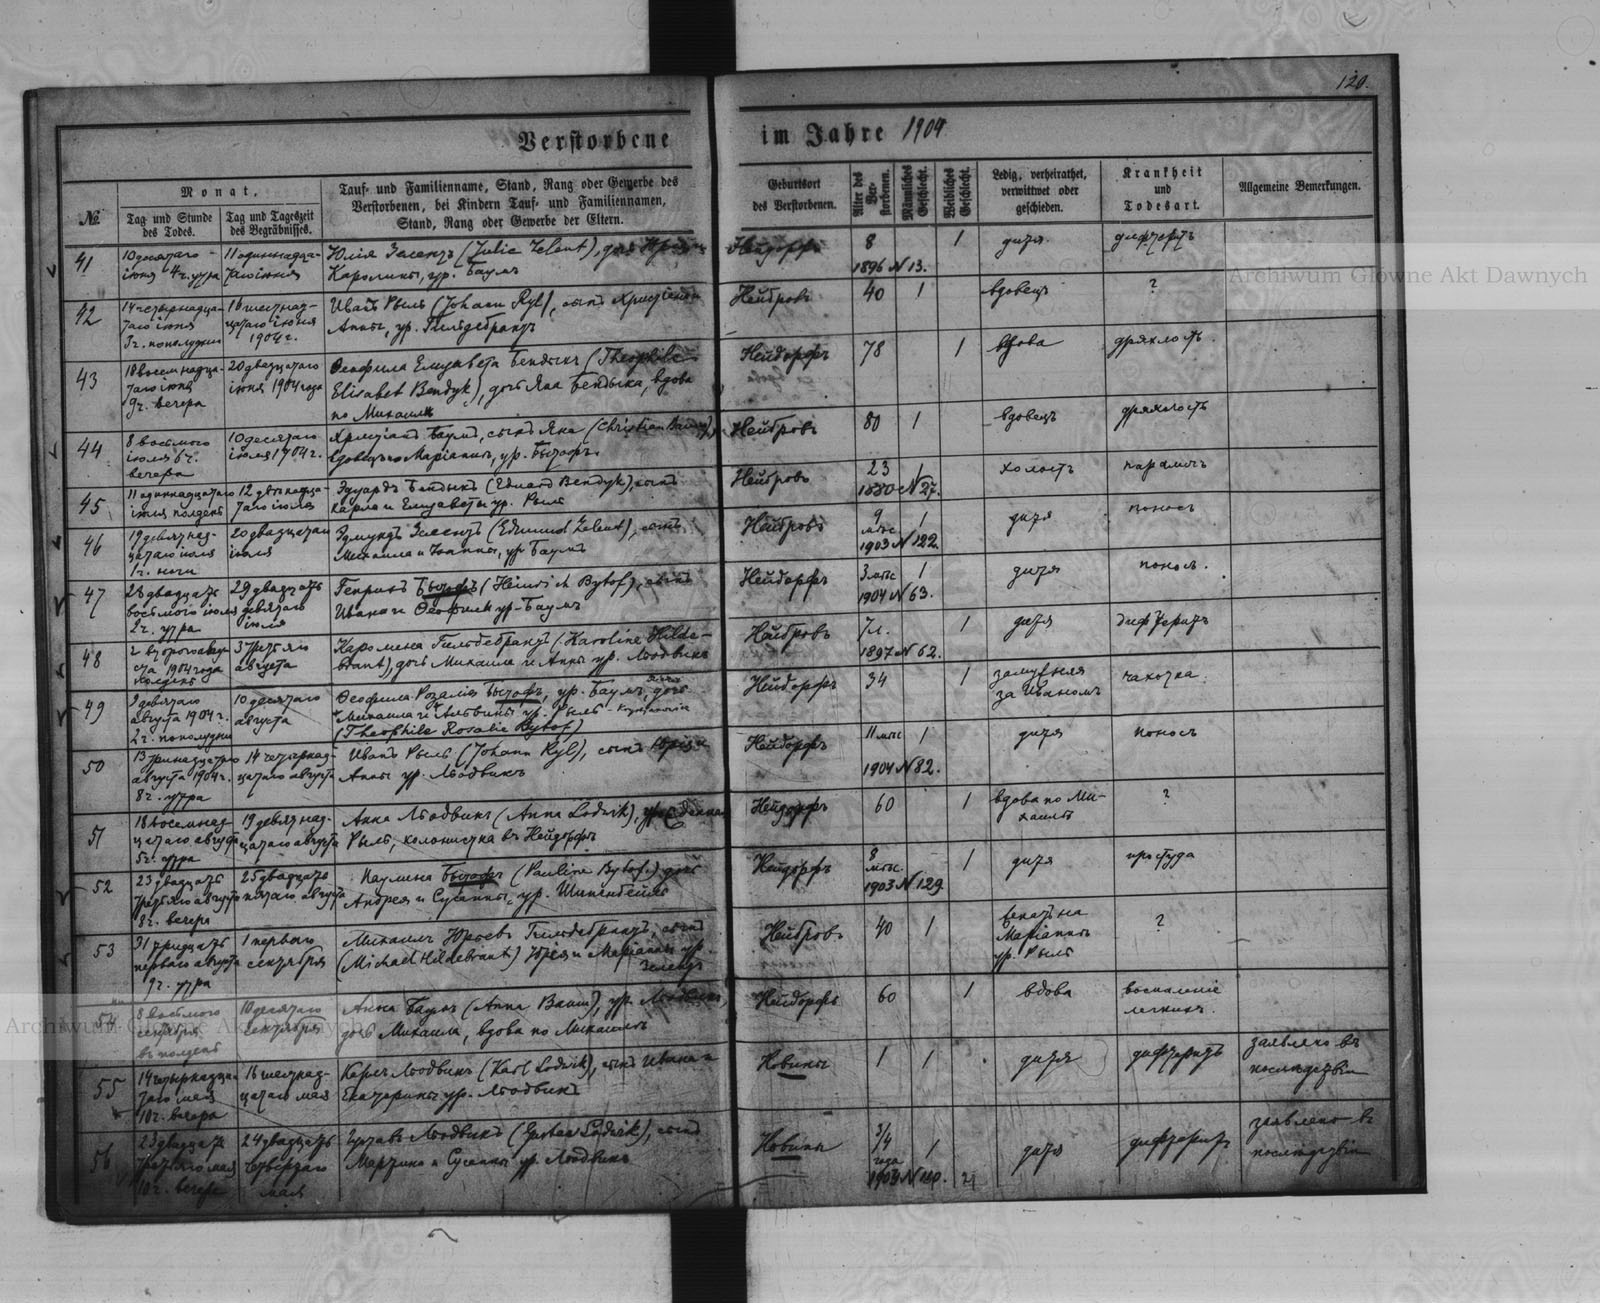 120.
Verstorbene im Jahre 1904
№
Monat.
Tag und Stunde des Todes.
Tag und Tageszeit des Begräbnisses.
Tauf- und Familienname, Stand, Rang oder Gewerbe des
Verstorbenen, bei Kindern Tauf- und Familiennamen,
Stand, Rang oder Gewerbe der Eltern.
Geburtsort
des Verstorbenen.
Alter des Verstorbenen.
Männliches Geschlecht.
Weibliches Geschlecht.
Ledig, verheirathet,
verwittwet oder
geschieden.
Krankheit
und
Todesart.
Allgemeine Bemerkungen.
41
10 десятаго
іюня 4 ч. утра
11 одиннадца-
таго іюня
Юлія Зелентъ (Julie Zelent), дочь
Каролины, ур. Баумъ
Нейдорфъ
8
1896 N 13.
1
дитя
дифтеритъ
42
14 четырнадца-
таго іюня
3 ч. пополудни
16 шестнад-
цатаго іюня
1904 г.
Иванъ Рыль (Johann Ryl), сынъ Христіана
Анны, ур. Гильдебрандтъ
Нейбровъ
40
1
вдовецъ
?
43
18 восемнадца-
таго іюня
9 ч. вечера
20 двадцатаго
іюня 1904 года
Ѳеофила Елизавета Бендыкъ (Theophile
Elisabet Bendyk), дочь Яна Бендыка, вдова
по Михаилѣ
Нейдорфъ
78
1
вдова
дряхлость
44
8 восьмого
іюля 6 ч.
вечера
10 десятаго
іюля 1904 г.
Христіанъ Баумъ, сынъ Яна (Christian Baum),
вдовецъ по Маріаннѣ, ур. Бытофъ.
Нейбровъ
80
1
вдовецъ
дряхлость
45
11 одиннадцатаго
іюля полдень
12 двѣнадца-
таго іюля
Эдуардъ Бендыкъ (Eduard Bendyk), сынъ
Карла и Елизаветы ур. Рыль
Нейбровъ
23
1880 N 27.
1
холостъ
параличъ
46
19 девятнад-
цатаго іюля
1 ч. ночи
20 двадцатаго
іюля
Эдмундъ Зелентъ (Edmund Zelent), сынъ
Михаила и Іоанны, ур. Баумъ
Нейбровъ
9
мѣс.
1903 N 122.
1
дитя
поносъ
47
28 двадцать
восьмого іюля
2 ч. утра
29 двадцать
девятаго
іюля
Генрихъ Бытофъ (Heinrich Bytof), сынъ
Ивана и Ѳеофили ур. Баумъ
Нейдорфъ
3 мѣс
1904 N 63.
1
дитя
поносъ.
48
2 второго авгу-
ста 1904 года
полдень
3 третьяго
августа
Каролина Гильдебрандтъ (Karoline Hilde-
brant), дочь Михаила и Анны ур. Людвикъ
Нейбровъ
7 л.
1897 N 62.
1
дитя
дифтеритъ
49
9 девятаго
августа 1904 г.
2 ч. пополудни
10 десятаго
августа
Ѳеофила Розалія Бытофъ, ур. Баумъ, дочь
Михаила и Альвины ур. Рыль
(Theophile Rosalie Bytof)
Нейдорфъ
34
1
замужняя
за Иваномъ
чахотка.
50
13 тринадцатаго
августа 1904 г.
8 ч. утра
14 четырнад-
цатаго августа
Иванъ Рыль (Johann Ryl), сынъ Юрія и
Анны ур. Людвикъ
Нейдорфъ
11 мѣс
1904 N 82.
1
дитя
поносъ
51
18 восемнад-
цатаго августа
5 ч. утра
19 девятнад-
цатаго августа
Анна Людвикъ (Anna Lodwik), урожденная
Рыль, колонистка въ Нейдорфѣ
Нейдорфъ
60
1
вдова по Ми-
хаилѣ
?
52
23 двадцать
третьяго августа
8 ч. вечера
25 двадцать
пятаго августа
Паулина Бытофъ (Pauline Bytof), дочь
Андрея и Сусанны, ур. Шинкбейль
Нейдорфъ
8
мѣс.
1903 N 129.
1
дитя
простуда
53
31 тридцать
перваго августа
9 ч. утра
1 перваго
сентября
Михаилъ Юрьевъ Гильдебрандтъ, сынъ
(Michael Hildebrant) Юрія и Маріанны ур.
Зелентъ
Нейбровъ
40
1
женатъ на
Маріаннѣ
ур. Рыль
?
54
8 восьмого
сентября
въ полдень
10 десятаго
сентября
Анна Баумъ (Anna Baum), ур. Людвикъ,
дочь Михаила, вдова по Михаилѣ
Нейдорфъ
60
1
вдова
воспаленіе
легкихъ.
55
14 четырнадца-
таго мая
10 ч. вечера
16 шестнад-
цатаго мая
Карлъ Людвикъ (Karl Lodwik), сынъ Ивана и
Екатерины ур. Людвикъ
Новины
1
1
дитя
дифтеритъ
заявлено въ
послѣдствіи
56
23 двадцать
третьяго мая
10 ч. вечера
24 двадцать
четвертаго
мая
Густавъ Людвикъ (Gustav Lodwik), сынъ
Мартина и Сусанны ур. Людвикъ
Новины
3/4
года
1903 N 110.
1
21
дитя
дифтеритъ
заявлено въ
послѣдствіи
Archiwum Główne Akt Dawnych
Archiwum Główne Akt Dawnych